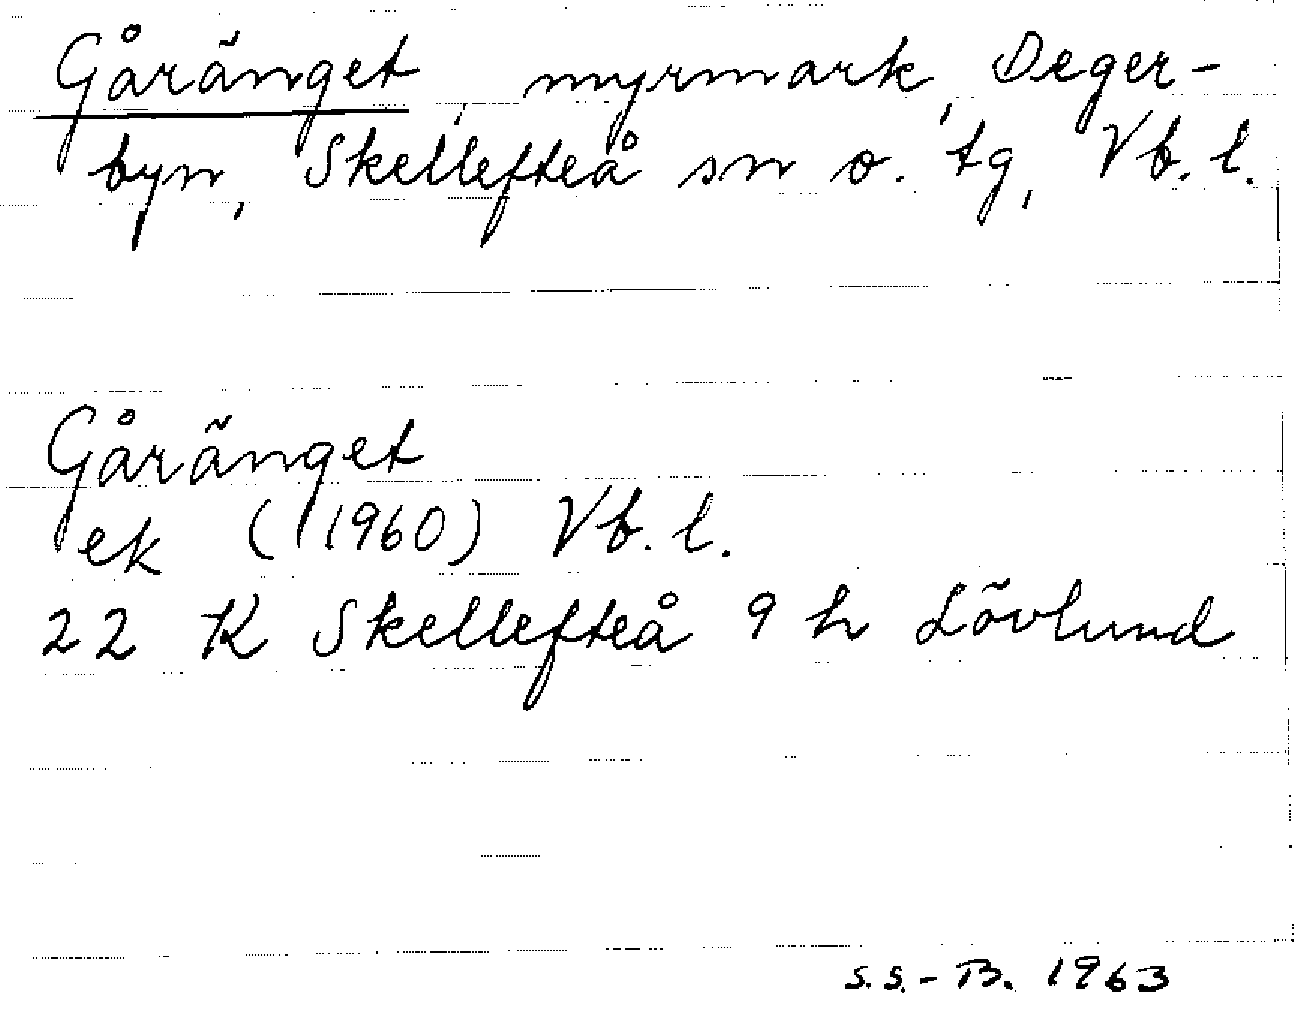 Gåränget, myrmark, Deger-
byn, Skellefteå sn o. tg, Vb. l.
Gåränget
ek (1960) Vb. l.
22 K Skellefteå 9 h Lövlund
S.S.-B. 1963